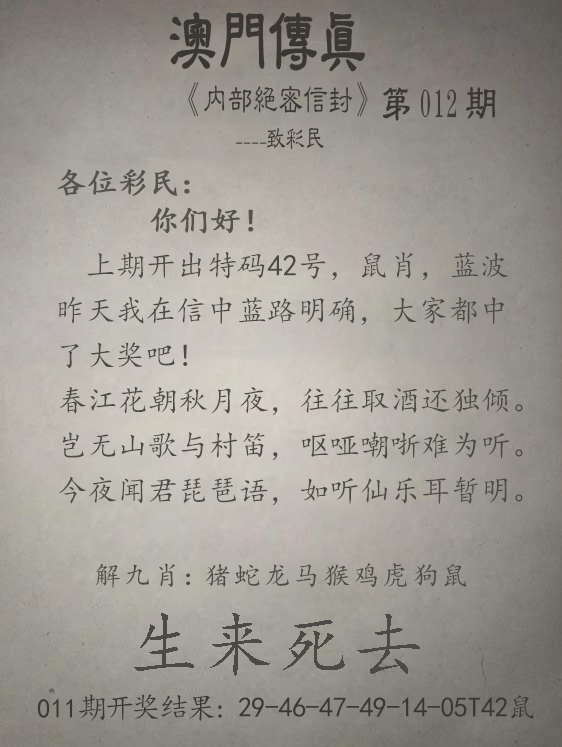 澳門傳眞
《内部絕密信封》第012期
----致彩民
各位彩民：
你们好！
上期开出特码42号，鼠肖，蓝波
昨天我在信中蓝路明确，大家都中
了大奖吧！
春江花朝秋月夜，往往取酒还独倾。
岂无山歌与村笛，呕哑嘲哳难为听。
今夜闻君琵琶语，如听仙乐耳暂明。
解九肖：猪蛇龙马猴鸡虎狗鼠
生来死去
011期开奖结果：29-46-47-49-14-05T42鼠